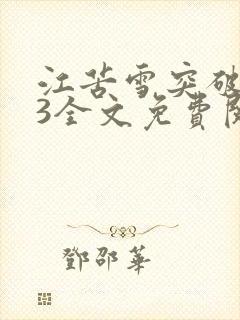 江苦雪突破
3全文免費閱
鄧邵華